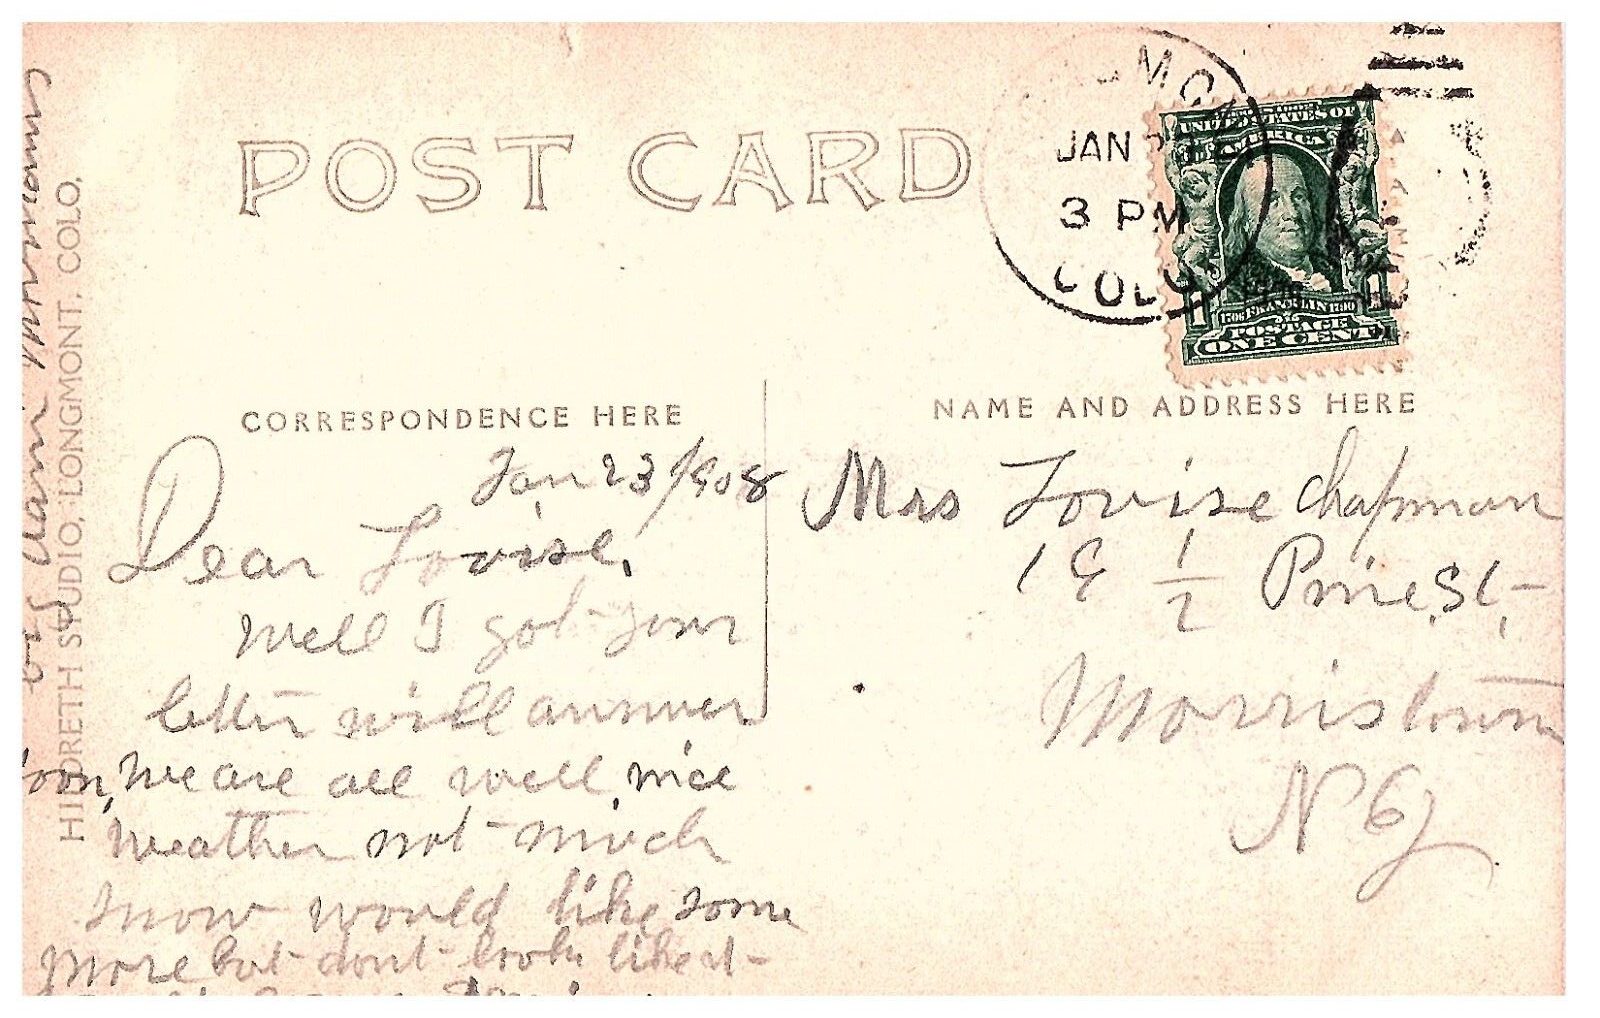 POST CARD
JAN
3 PM
COLO.
UNITED STATES OF
AMERICA
1706 FRANKLIN 1790
POSTAGE
ONE CENT
CORRESPONDENCE HERE
NAME AND ADDRESS HERE
HILDRETH STUDIO, LONGMONT, COLO,
Jan 23/1908
Dear Louise,
Well I got your
letter will answer
soon, We are all well, nice
weather not much
snow would like some
more but dont look like it
Mrs Louise Chapman
19 1/2 Pine St,
Morristown
N J